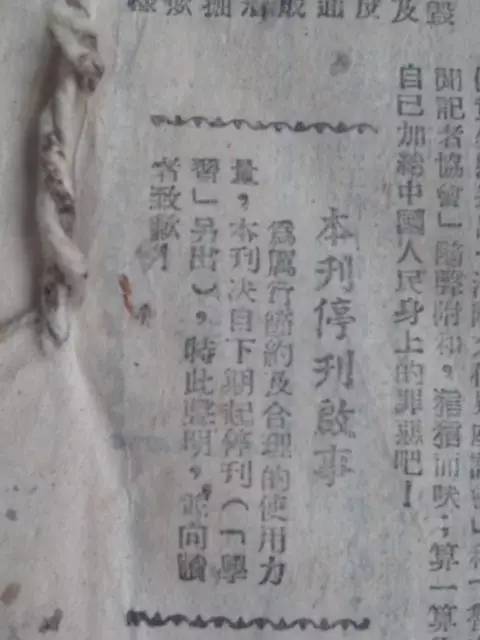 自已加給中國人民身上的罪惡吧！
聞記者協會」隨聲附和，狺狺而吠；算一算
本刊停刊啟事
爲厲行節約及合理的使用力
量，本刊决自下期起停刊（「學
習」另出），特此聲明，並向讀
者致歉！